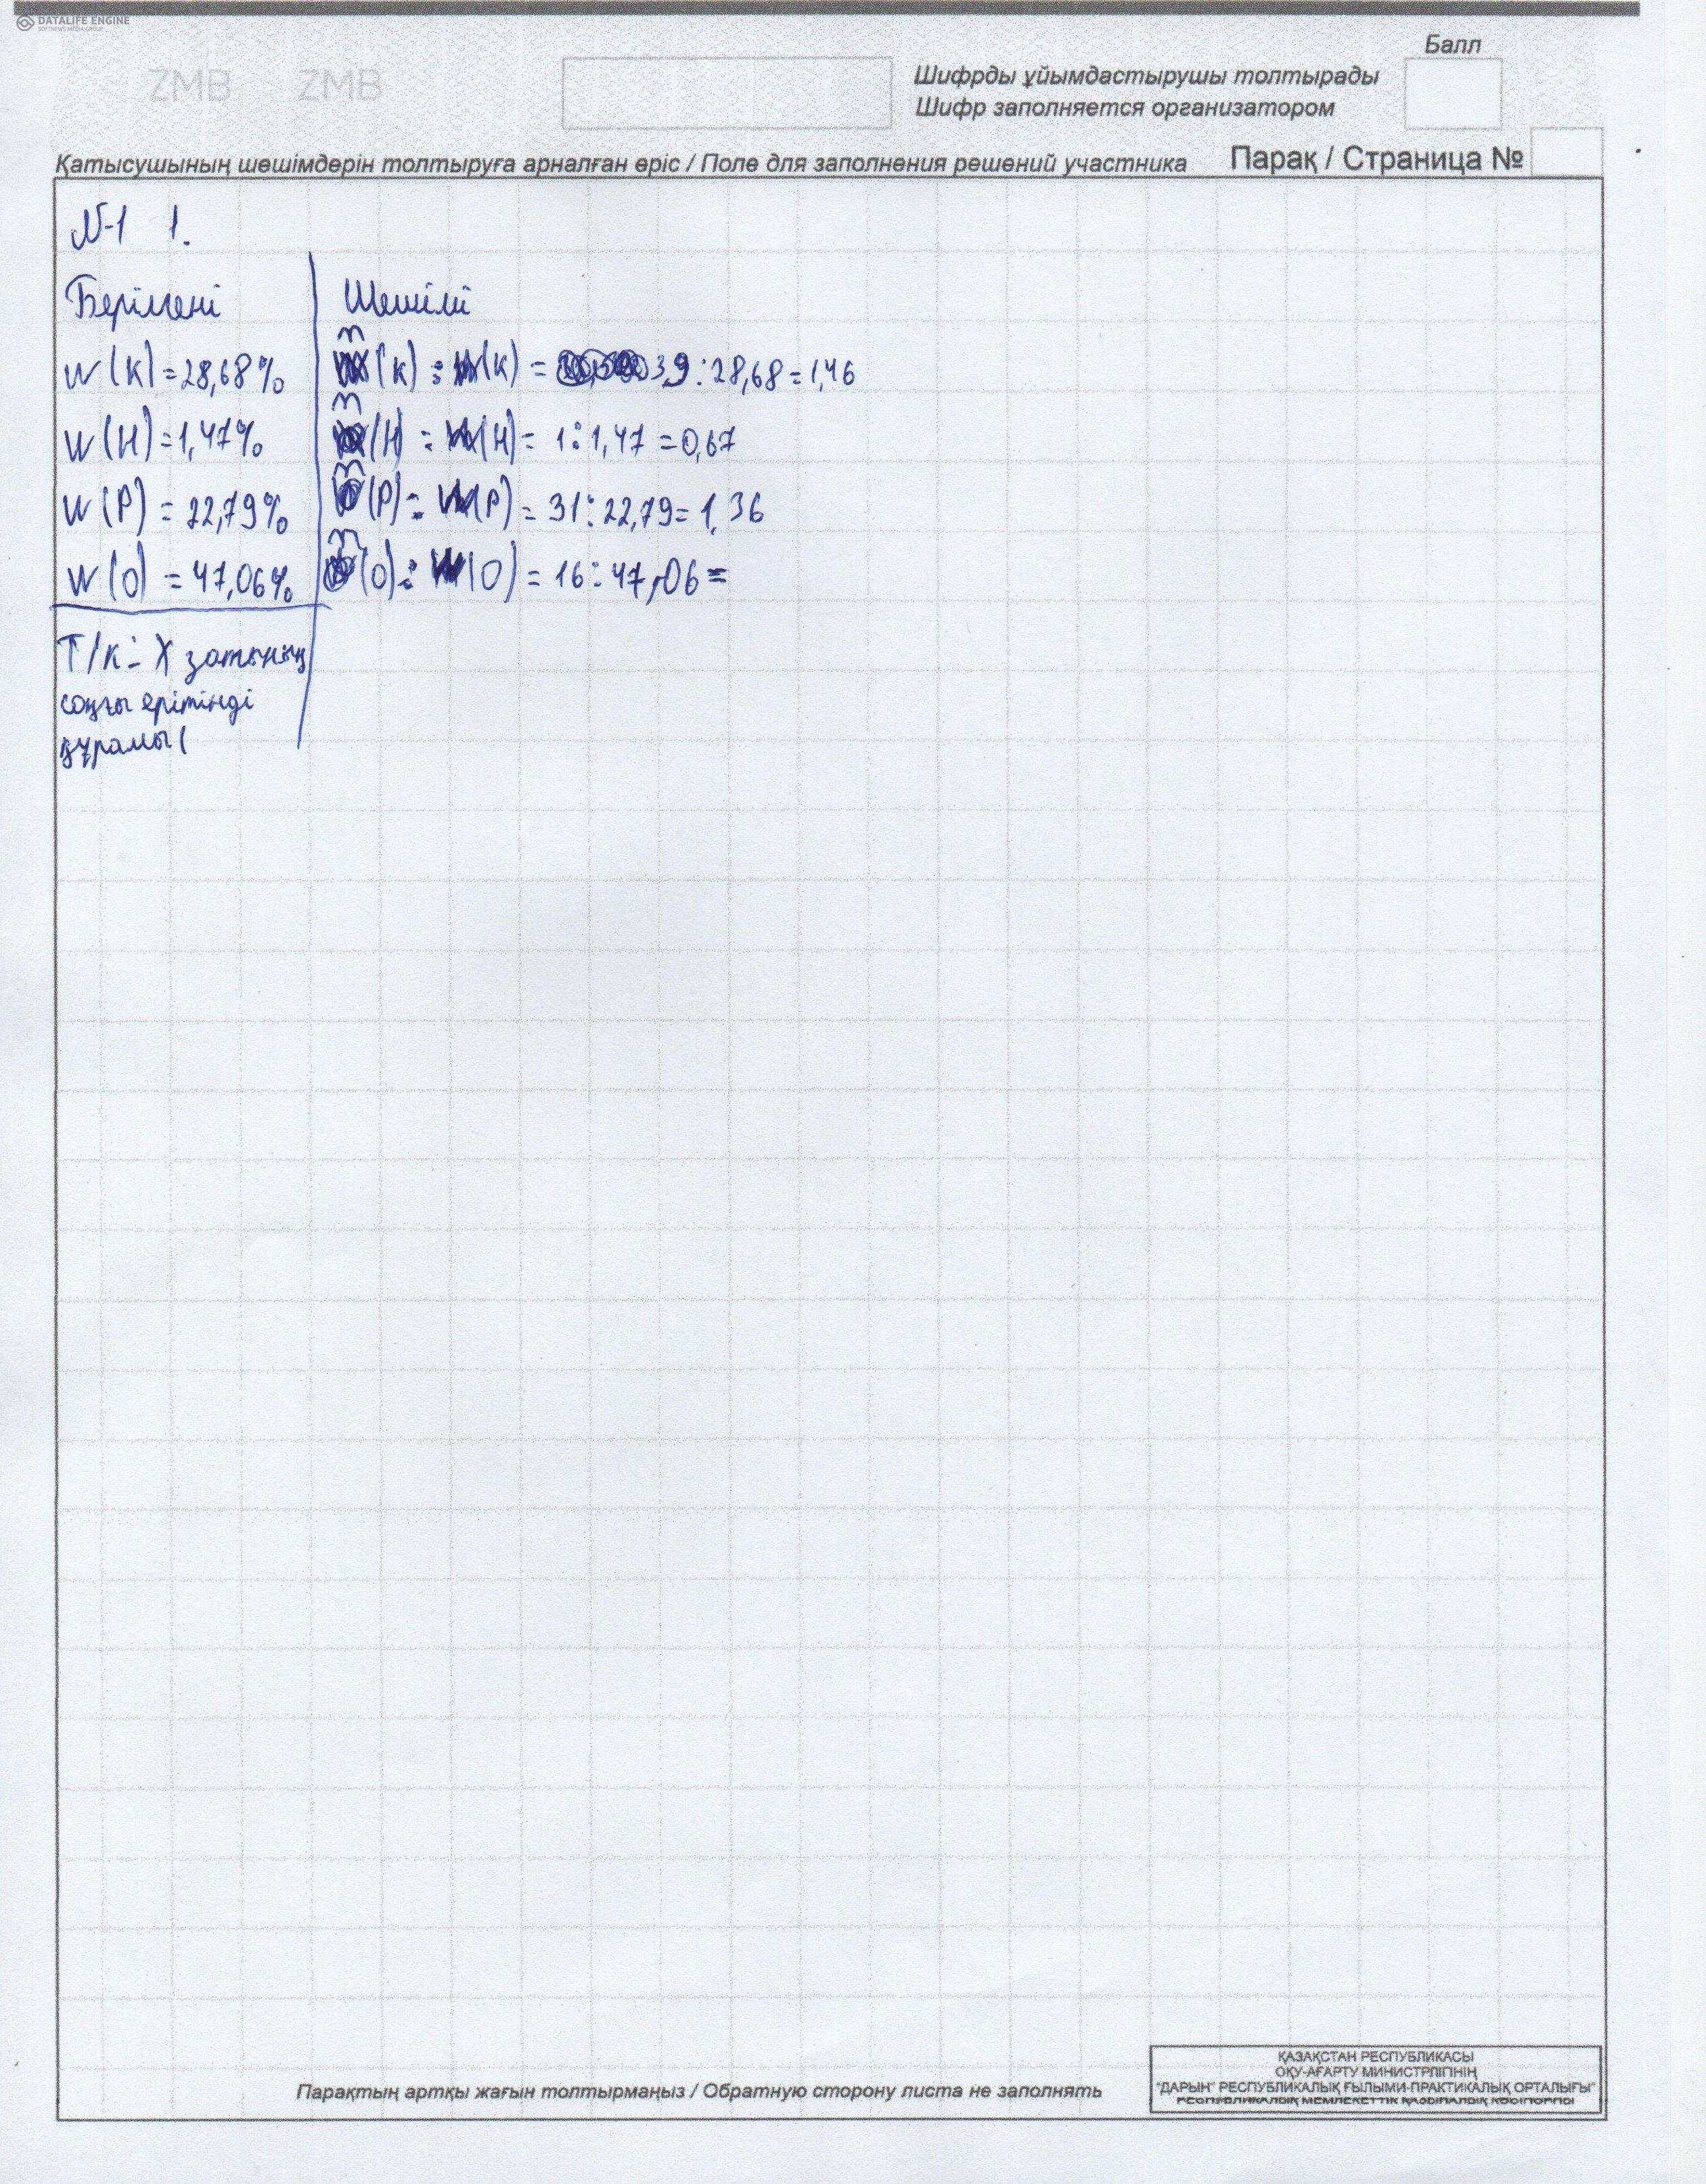 DATALIFE ENGINE
SOFTNEWS MEDIA GROUP
ZMB ZMB
Балл
Шифрды ұйымдастырушы толтырады
Шифр заполняется организатором
Қатысушының шешімдерін толтыруға арналған өріс / Поле для заполнения решений участника Парақ / Страница №
№1 1.
Берілгені Шешімі
w(K)=28,68% m(K) : (K) = 39:28,68=1,46
w(H)=1,47% m(H) : (H) = 1:1,47=0,67
w(P)=22,79% m(P) : (P) = 31:22,79=1,36
w(O)=47,06% m(O) : (O) = 16:47,06=
Т/к: X затының
соңғы ерітінді
құрамы(
Парақтың артқы жағын толтырмаңыз / Обратную сторону листа не заполнять
ҚАЗАҚСТАН РЕСПУБЛИКАСЫ
ОҚУ-АҒАРТУ МИНИСТРЛІГІНІҢ
"ДАРЫН" РЕСПУБЛИКАЛЫҚ ҒЫЛЫМИ-ПРАКТИКАЛЫҚ ОРТАЛЫҒЫ"
РЕСПУБЛИКАЛЫҚ МЕМЛЕКЕТТІК ҚАЗЫНАЛЫҚ КӘСІПОРНЫ